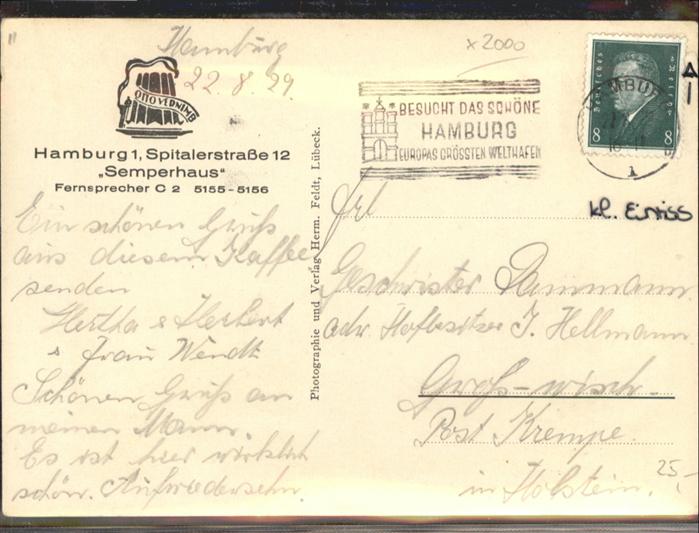 Hamburg
22.8.29
x 2000
OTTO VERNIMB
Hamburg 1, Spitalerstraße 12
„Semperhaus“
Fernsprecher C 2 5155-5156
BESUCHT DAS SCHÖNE
HAMBURG
EUROPAS GRÖSSTEN WELTHAFEN
HAMBURG
1
Deutsches Reich
8 8
kl. Einriss
Ein schönen Gruß
aus diesem Kaffee
senden
Hertha & Herbert
& Frau Wendt
Schönen Gruß an
meinen Mann
Es ist hier wirklich
schön. Aufwiedersehn.
Photographie und Verlag Herm. Feldt, Lübeck.
Frl
Geschwister Dammann
adr. Hofbesitzer J. Hellmann
Groß-wisch
Post Krempe.
in Holstein.
25,-